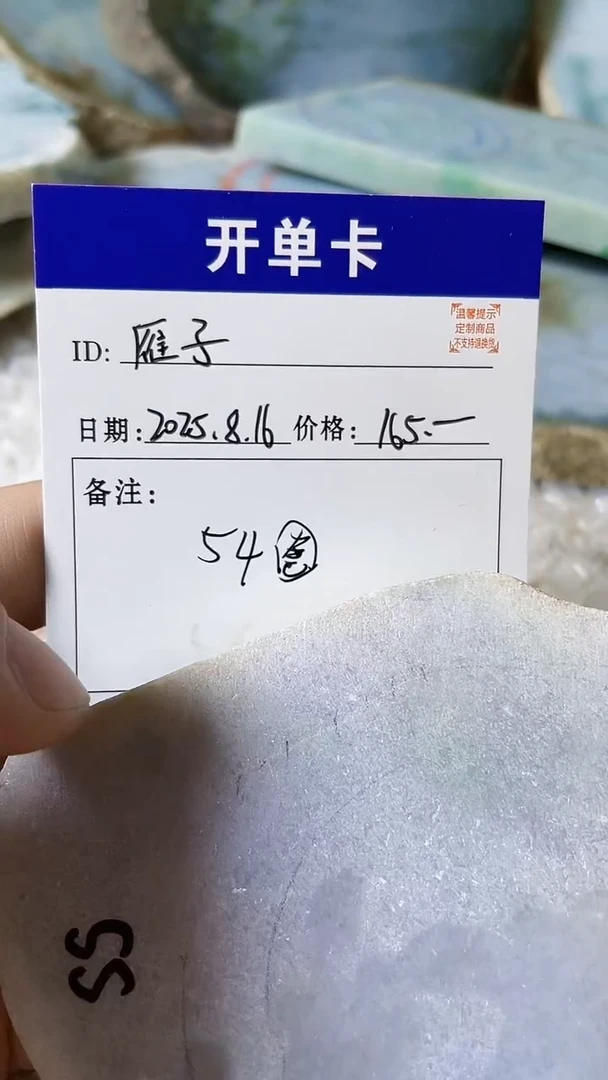 开单卡
温馨提示
定制商品
不支持退换货
ID: 雁子
日期: 2025.8.16 价格: 165.一
备注:
54圈
SS